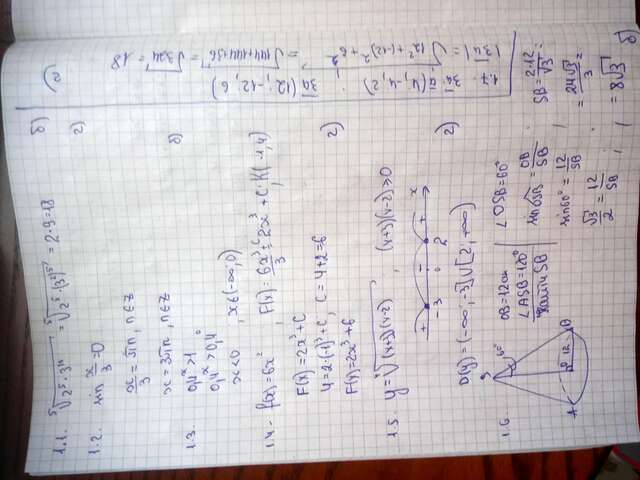 1.1. ⁵√(2⁵·3¹⁰) = ⁵√(2⁵·(3²)⁵) = 2·9=18 б)
1.2. sin x/3 =0 г)
x/3 = πn, n∈Z
x = 3πn, n∈Z
1.3. 0,4ˣ>1 б)
0,4ˣ>0,4⁰
x<0 , x∈(-∞;0)
1.4. f(x)=6x² , F(x)= 6x³/3 +C= 2x³ +C; K(-1;4)
F(x)=2x³+C
4=2·(-1)³+C, C=4+2=6
F(x)=2x³+6 г)
1.5. y=√((x+3)(x-2)) , (x+3)(x-2)≥0
+ - + x
-3 0 2
D(y)=(-∞;-3]∪[2;+∞) г)
1.6. S 60° A O 12 B
OB=12см
∠ASB=120°
Знайти SB
∠OSB=60°
sin OSB = OB/SB
sin60°= 12/SB
√3/2 = 12/SB ;
SB= 2·12/√3 =
= 24√3/3 =
= 8√3 б)
1.7. 3a̅. a̅(4;-4;2) ; 3a̅(12;-12;6) г)
|3a̅|=√(12²+(-12)²+6²) =√(144+144+36) =√324 = 18